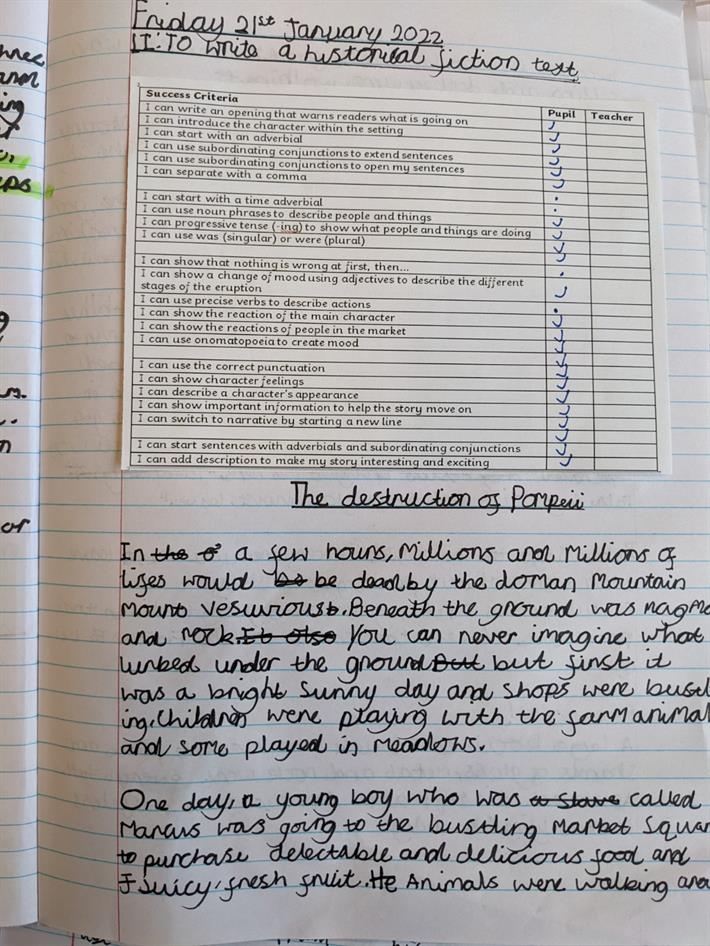 Friday 21st January 2022
LI: To write a historical fiction text
Success Criteria
Pupil Teacher
I can write an opening that warns readers what is going on
I can introduce the character within the setting
I can start with an adverbial
I can use subordinating conjunctions to extend sentences
I can use subordinating conjunctions to open my sentences
I can separate with a comma
I can start with a time adverbial
I can use noun phrases to describe people and things
I can progressive tense (-ing) to show what people and things are doing
I can use was (singular) or were (plural)
I can show that nothing is wrong at first, then...
I can show a change of mood using adjectives to describe the different
stages of the eruption
I can use precise verbs to describe actions
I can show the reaction of the main character
I can show the reactions of people in the market
I can use onomatopoeia to create mood
I can use the correct punctuation
I can show character feelings
I can describe a character's appearance
I can show important information to help the story move on
I can switch to narrative by starting a new line
I can start sentences with adverbials and subordinating conjunctions
I can add description to make my story interesting and exciting
The destruction of Pompeii
In the a few hours, Millions and Millions of
lifes would be dead by the doman Mountain
Mount Vesuvious. Beneath the ground was magma
and rock. It also You can never imagine what
lurked under the ground But but first it
was a bright Sunny day and shops were bustl
ing. Children were playing with the farm animal
and some played in meadows.
One day, a young boy who was a slave called
Marcus was going to the bustling Market Squar
to purchase delectable and delicious food and
Jsuicy, fresh fruit. He Animals were walking aro